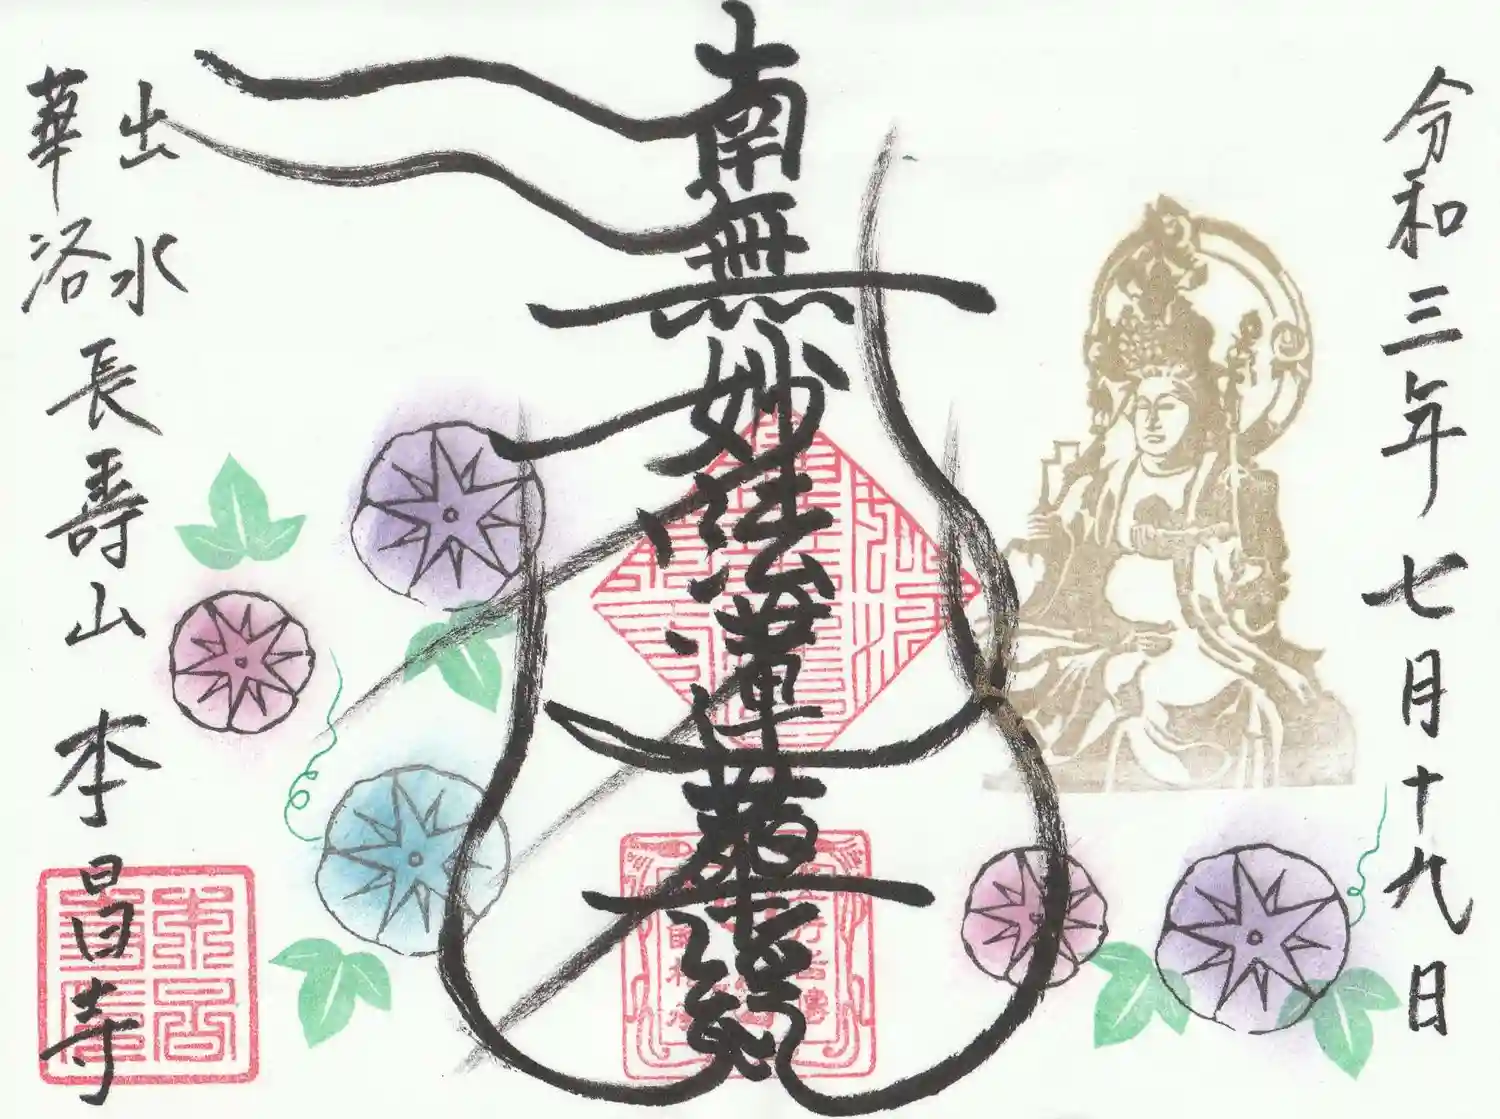 令和三年七月十九日
南無妙法蓮華経
出水
華洛
長壽山本昌寺